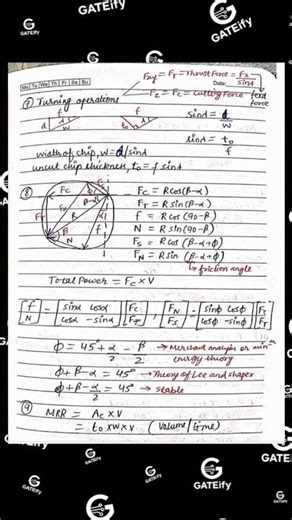 GATEify
GATEify
Mo Tu We Th Fr Sa Su
Date:
Fxy = FT = Thrust Force = Fx / sinλ
Fz = FC = Cutting Force
feed force
⑦ Turning operations
sinλ = d/w
sinλ = t₀/f
d
λ
w
t₀
λ
f
width of chip, w = d/sinλ
uncut chip thickness, t₀ = f sinλ
⑧
FC = R cos(β-α)
FT = R sin(β-α)
f = R cos(90-β)
N = R sin(90-β)
FS = R cos(β-α+φ)
FN = R sin(β-α+φ)
↳ friction angle
FC
FT
FS
β
β-α
f
N
Total Power = FC × V
[f N] = [sinα cosα cosα -sinα] [FC FT], [FN FS] = [sinφ cosφ cosφ -sinφ] [FC FT]
φ = 45 + α/2 - β/2 → Merchant analysis or min energy theory
φ + β - α = 45° → Theory of Lee and shaffer
φ + β - α/2 = 45° → stabler
⑨ MRR = AC × V
= t₀ × w × v (Volume/time)
GATEify
GATEify